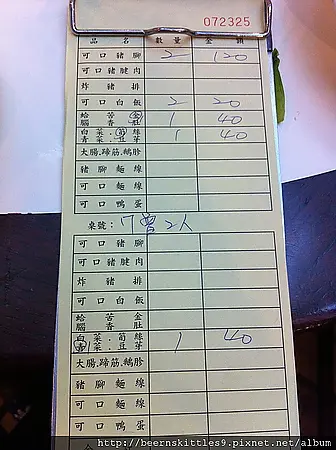 072325
品名 數量 金額
可口豬腳 2 120
可口豬腱肉
炸豬排
可口白飯 2 20
蛤苦金
腦香肚 1 40
白菜.筍絲
青菜.豆芽 1 40
大腸.蹄筋.鵝胗
豬腳麵線
可口麵線
可口鴨蛋
桌號: 2人
可口豬腳
可口豬腱肉
炸豬排
可口白飯
蛤苦金
腦香肚
白菜.筍絲
青菜.豆芽 1 40
大腸.蹄筋.鵝胗
豬腳麵線
可口麵線
可口鴨蛋
http://beernskittles9.pixnet.net/album